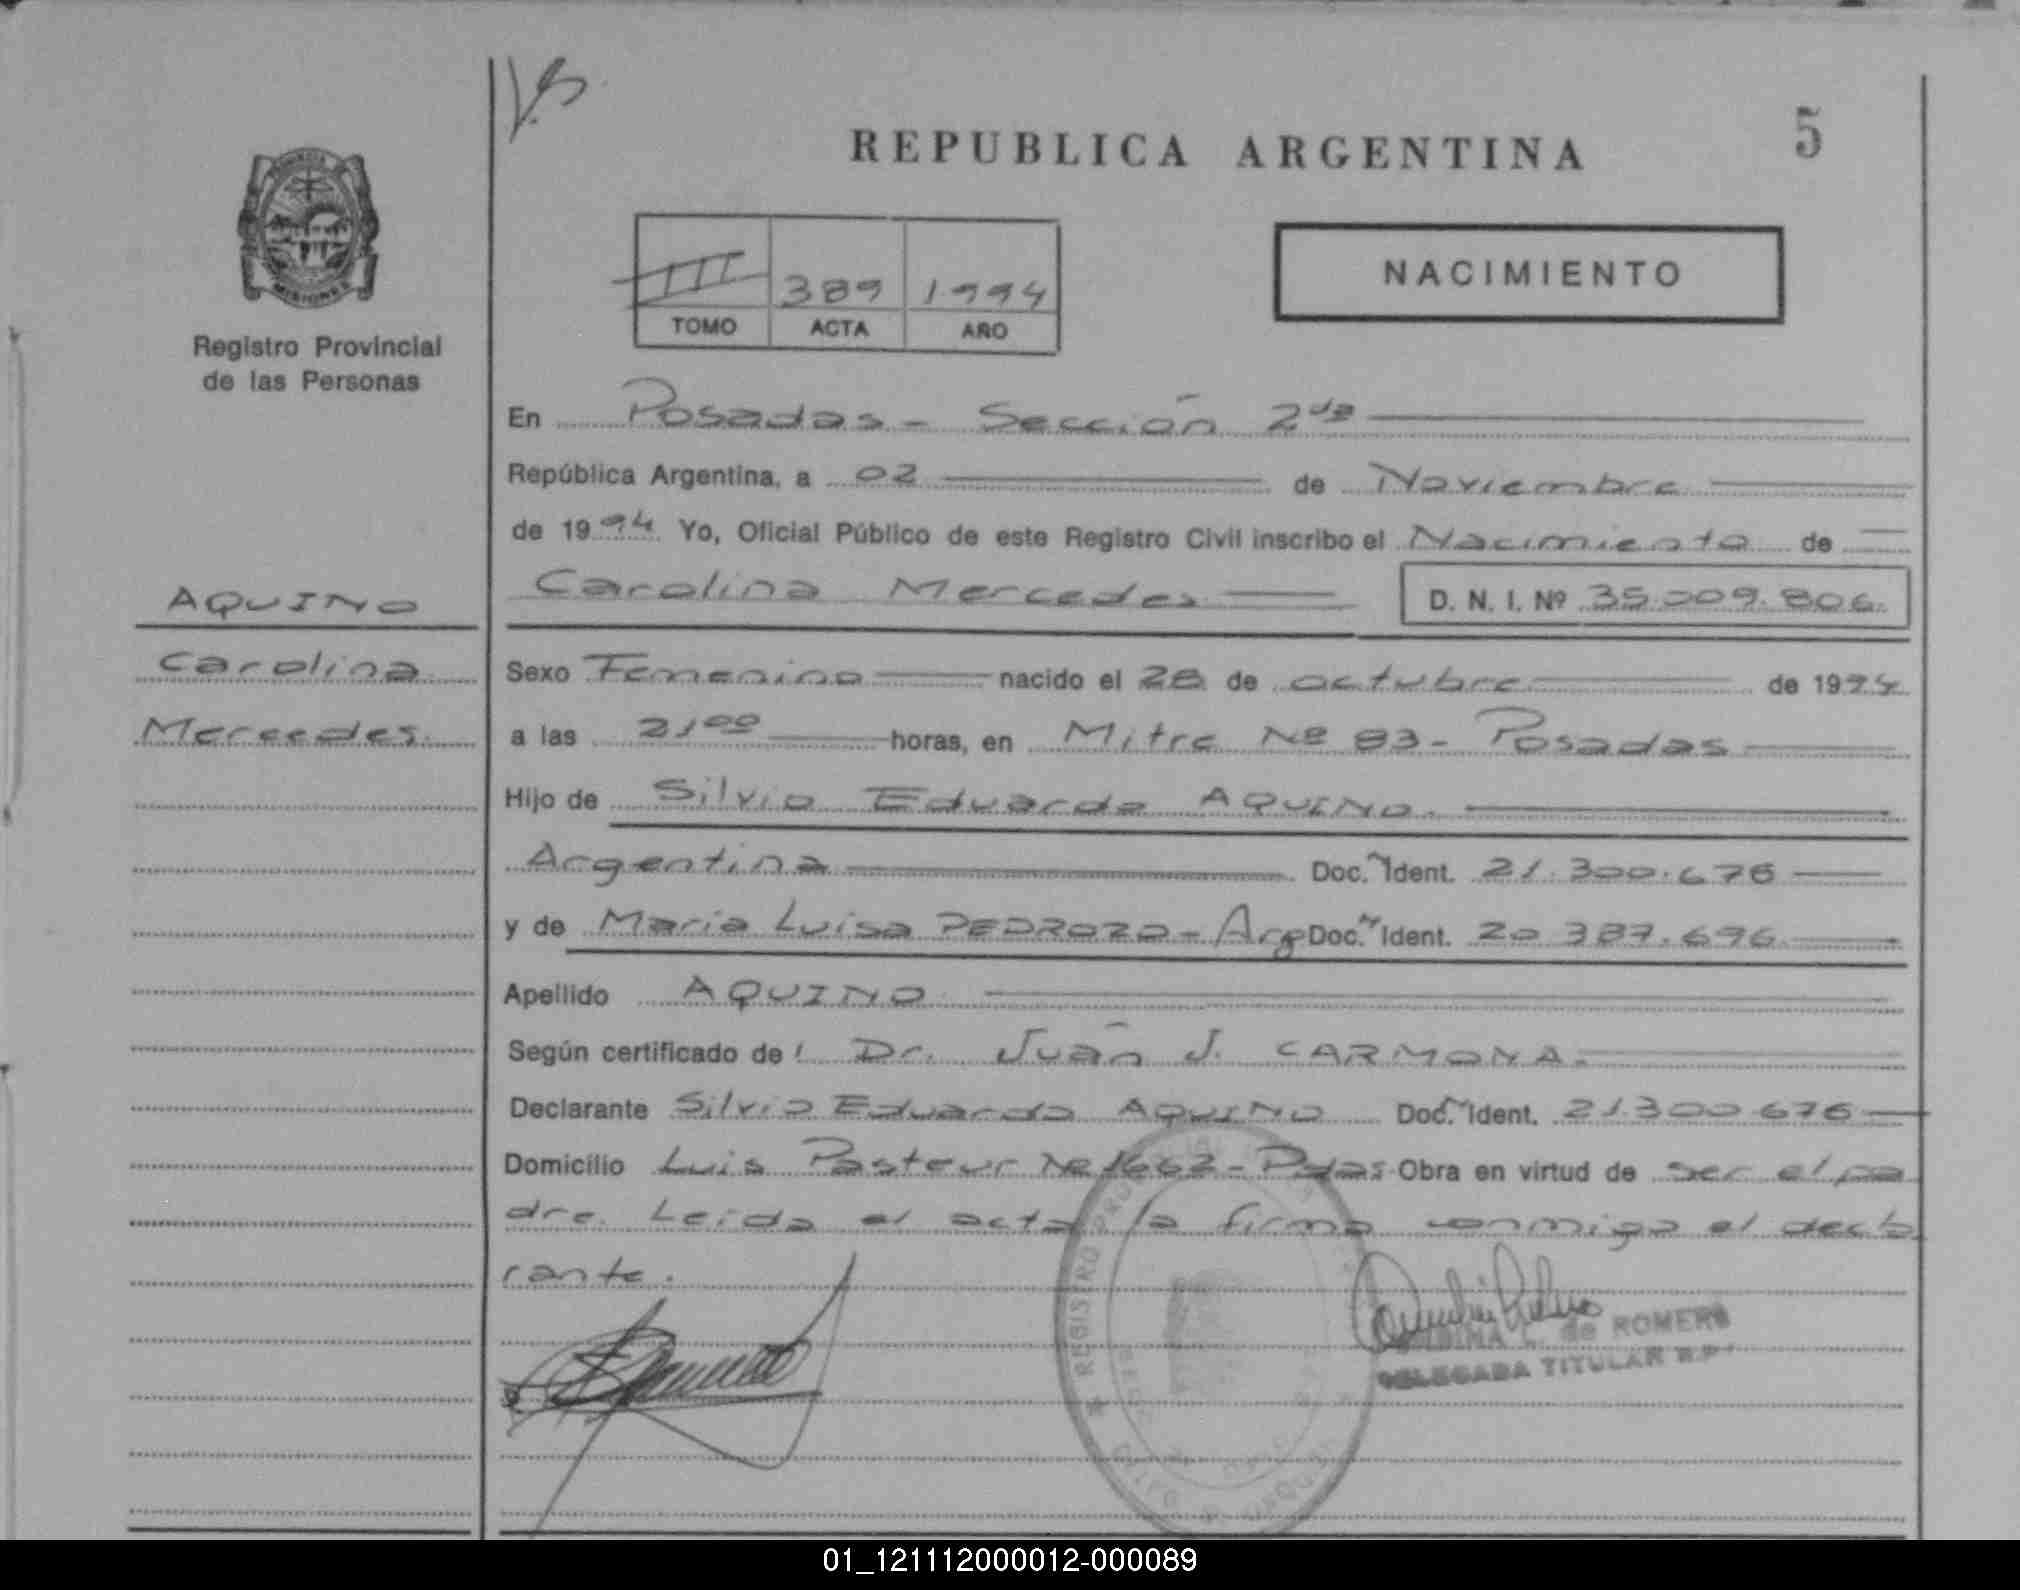 V.B
5
REPUBLICA ARGENTINA
III 389 1.994
TOMO ACTA AÑO
NACIMIENTO
MISIONES
Registro Provincial
de las Personas
En Posadas - Sección 2da
República Argentina, a 02 de Noviembre
de 1994 Yo, Oficial Público de este Registro Civil inscribo el Nacimiento de
Carolina Mercedes D. N. I. Nº 35.009.806.
AQUINO
Carolina
Mercedes.
Sexo Femenino nacido el 28 de octubre de 1994
a las 21 00 horas, en Mitre Nº 83 - Posadas
Hijo de Silvio Eduardo AQUINO.
Argentina Doc. Ident. 21.300.676
y de Maria Luisa PEDROZO - Arg Doc. Ident. 20.387.696
Apellido AQUINO
Según certificado de Dr. Juan J. CARMONA.
Declarante Silvio Eduardo AQUINO Doc. Ident. 21.300.676
Domicilio Luis Pasteur Nº 1662 - Pdas Obra en virtud de ser el pa
dre. Leida el acta la firma conmigo el decla
rante.
REGISTRO
L. de ROMERO
DELEGADA TITULAR R.P.
01_121112000012-000089